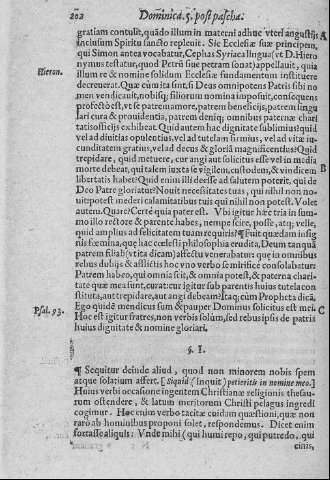 202 Dominica. 5. post pascha.
gratiam contulit, quãdo illum in materni adhuc vteri angustijs A
inclusum Spiritu sancto repleuit. Sic Ecclesiæ suæ principem,
qui Simon antea vocabatur, Cephas Syriaca lingua (vt D. Hiero
Hieron. nymus testatur, quod Petrũ siue petram sonat) appellauit, quia
illum re & nomine solidum Ecclesiæ fundamentum instituere
decreuerat. Quæ cum ita sint, si Deus omnipotens Patris sibi no
men vendicauit, nobisq; filiorum nomina imposuit, consequens
profectò est, vt se patrem amore, patrem beneficijs, patrem singu
lari cura & prouidentia, patrem deniq; omnibus paternæ chari
tatis officijs exhibeat. Quid autem hac dignitate sublimius? quid
vel ad diuitias opulentius, vel ad tutelam firmius, vel ad vitæ iu-
cunditatem gratius, vel ad decus & gloriã magnificentius? Quid
trepidare, quid metuere, cur angi aut solicitus esse vel in media
morte debeat, qui talem iuxta se vigilem, custodem, & vindicem B
libertatis habet? Quid enim illi deesse ad salutem poterit, qui de
Deo Patre gloriatur? Nouit necessitates tuas, qui nihil non no-
uit: potest mederi calamitatibus tuis qui nihil non potest. Volet
autem. Quare? Certè quia pater est. Vbi igitur hæc tria in sum-
mo illo rectore & parente habes, nempe scire, posse, atq; velle,
quid amplius ad felicitatem tuam requiris? ¶ Fuit quædam insig
nis fœmina, quæ hac cœlesti philosophia erudita, Deum tanquã
patrem filiali (vt ita dicam) affectu venerabatur: quæ in omnibus
rebus dubijs & afflictis hoc vno verbo se mirificè consolabatur:
Patrem habeo, qui omnia scit, & omnia potest, & paterna chari-
tate quæ mea sunt, curat: cur igitur sub parentis huius tutela con
stituta, aut trepidare, aut angi debeam? Itaq; cùm Propheta dicã,
Psal. 93. Ego quidẽ mendicus sum & pauper Dominus solicitus est mei. C
Hoc est igitur fratres, non verbis solùm, sed rebus ipsis de patris
huius dignitate & nomine gloriari.
§. I.
¶ Sequitur deinde aliud, quod non minorem nobis spem
atque solatium affert. [Siquid (inquit) petieritis in nomine meo.]
Huius verbi occasione ingentem Christianæ religionis thesau-
rum ostendere, & latum meritorum Christi pelagus ingredi
cogimur. Hoc enim verbo tacitæ cuidam quæstioni, quæ non
rarò ab hominibus proponi solet, respondemus. Dicet enim
fortasse aliquis: Vnde mihi (qui humi repo, qui putredo, qui
cinis,